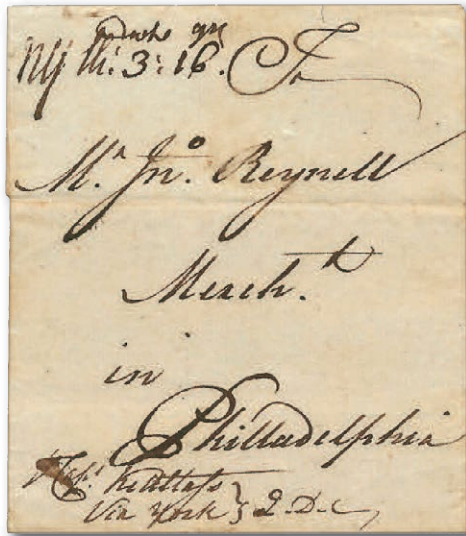 NY 3: 16. To
Mr. Jno. Reynell
Mercht.
in
Philladelphia
Via York } 2 D.c